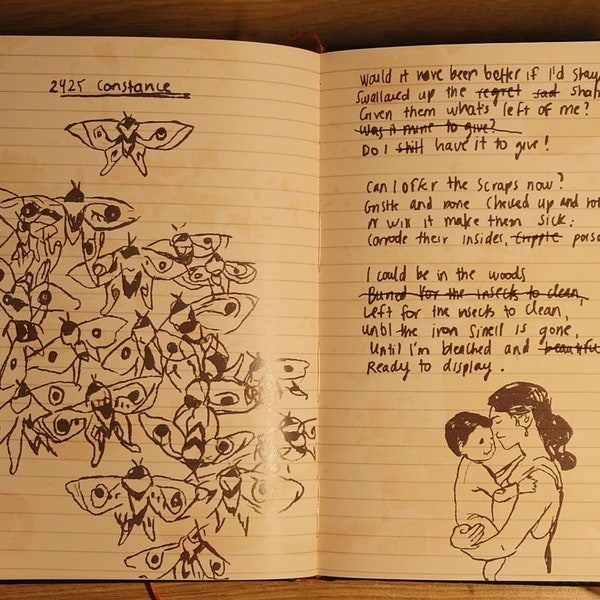 2425 Constance
Would it have been better if I'd stay
Swallowed up the regret sad
Given them what's left of me?
Was it mine to give?
Do I still have it to give!
Can I offer the scraps now?
Gristle and bone chewed up and
it make them sick.
Corrode their insides, cripple
I could be in the woods
Buried for the insects to clean,
Left for the insects to clean,
until the iron smell is gone,
Until I'm bleached and
Ready to display.